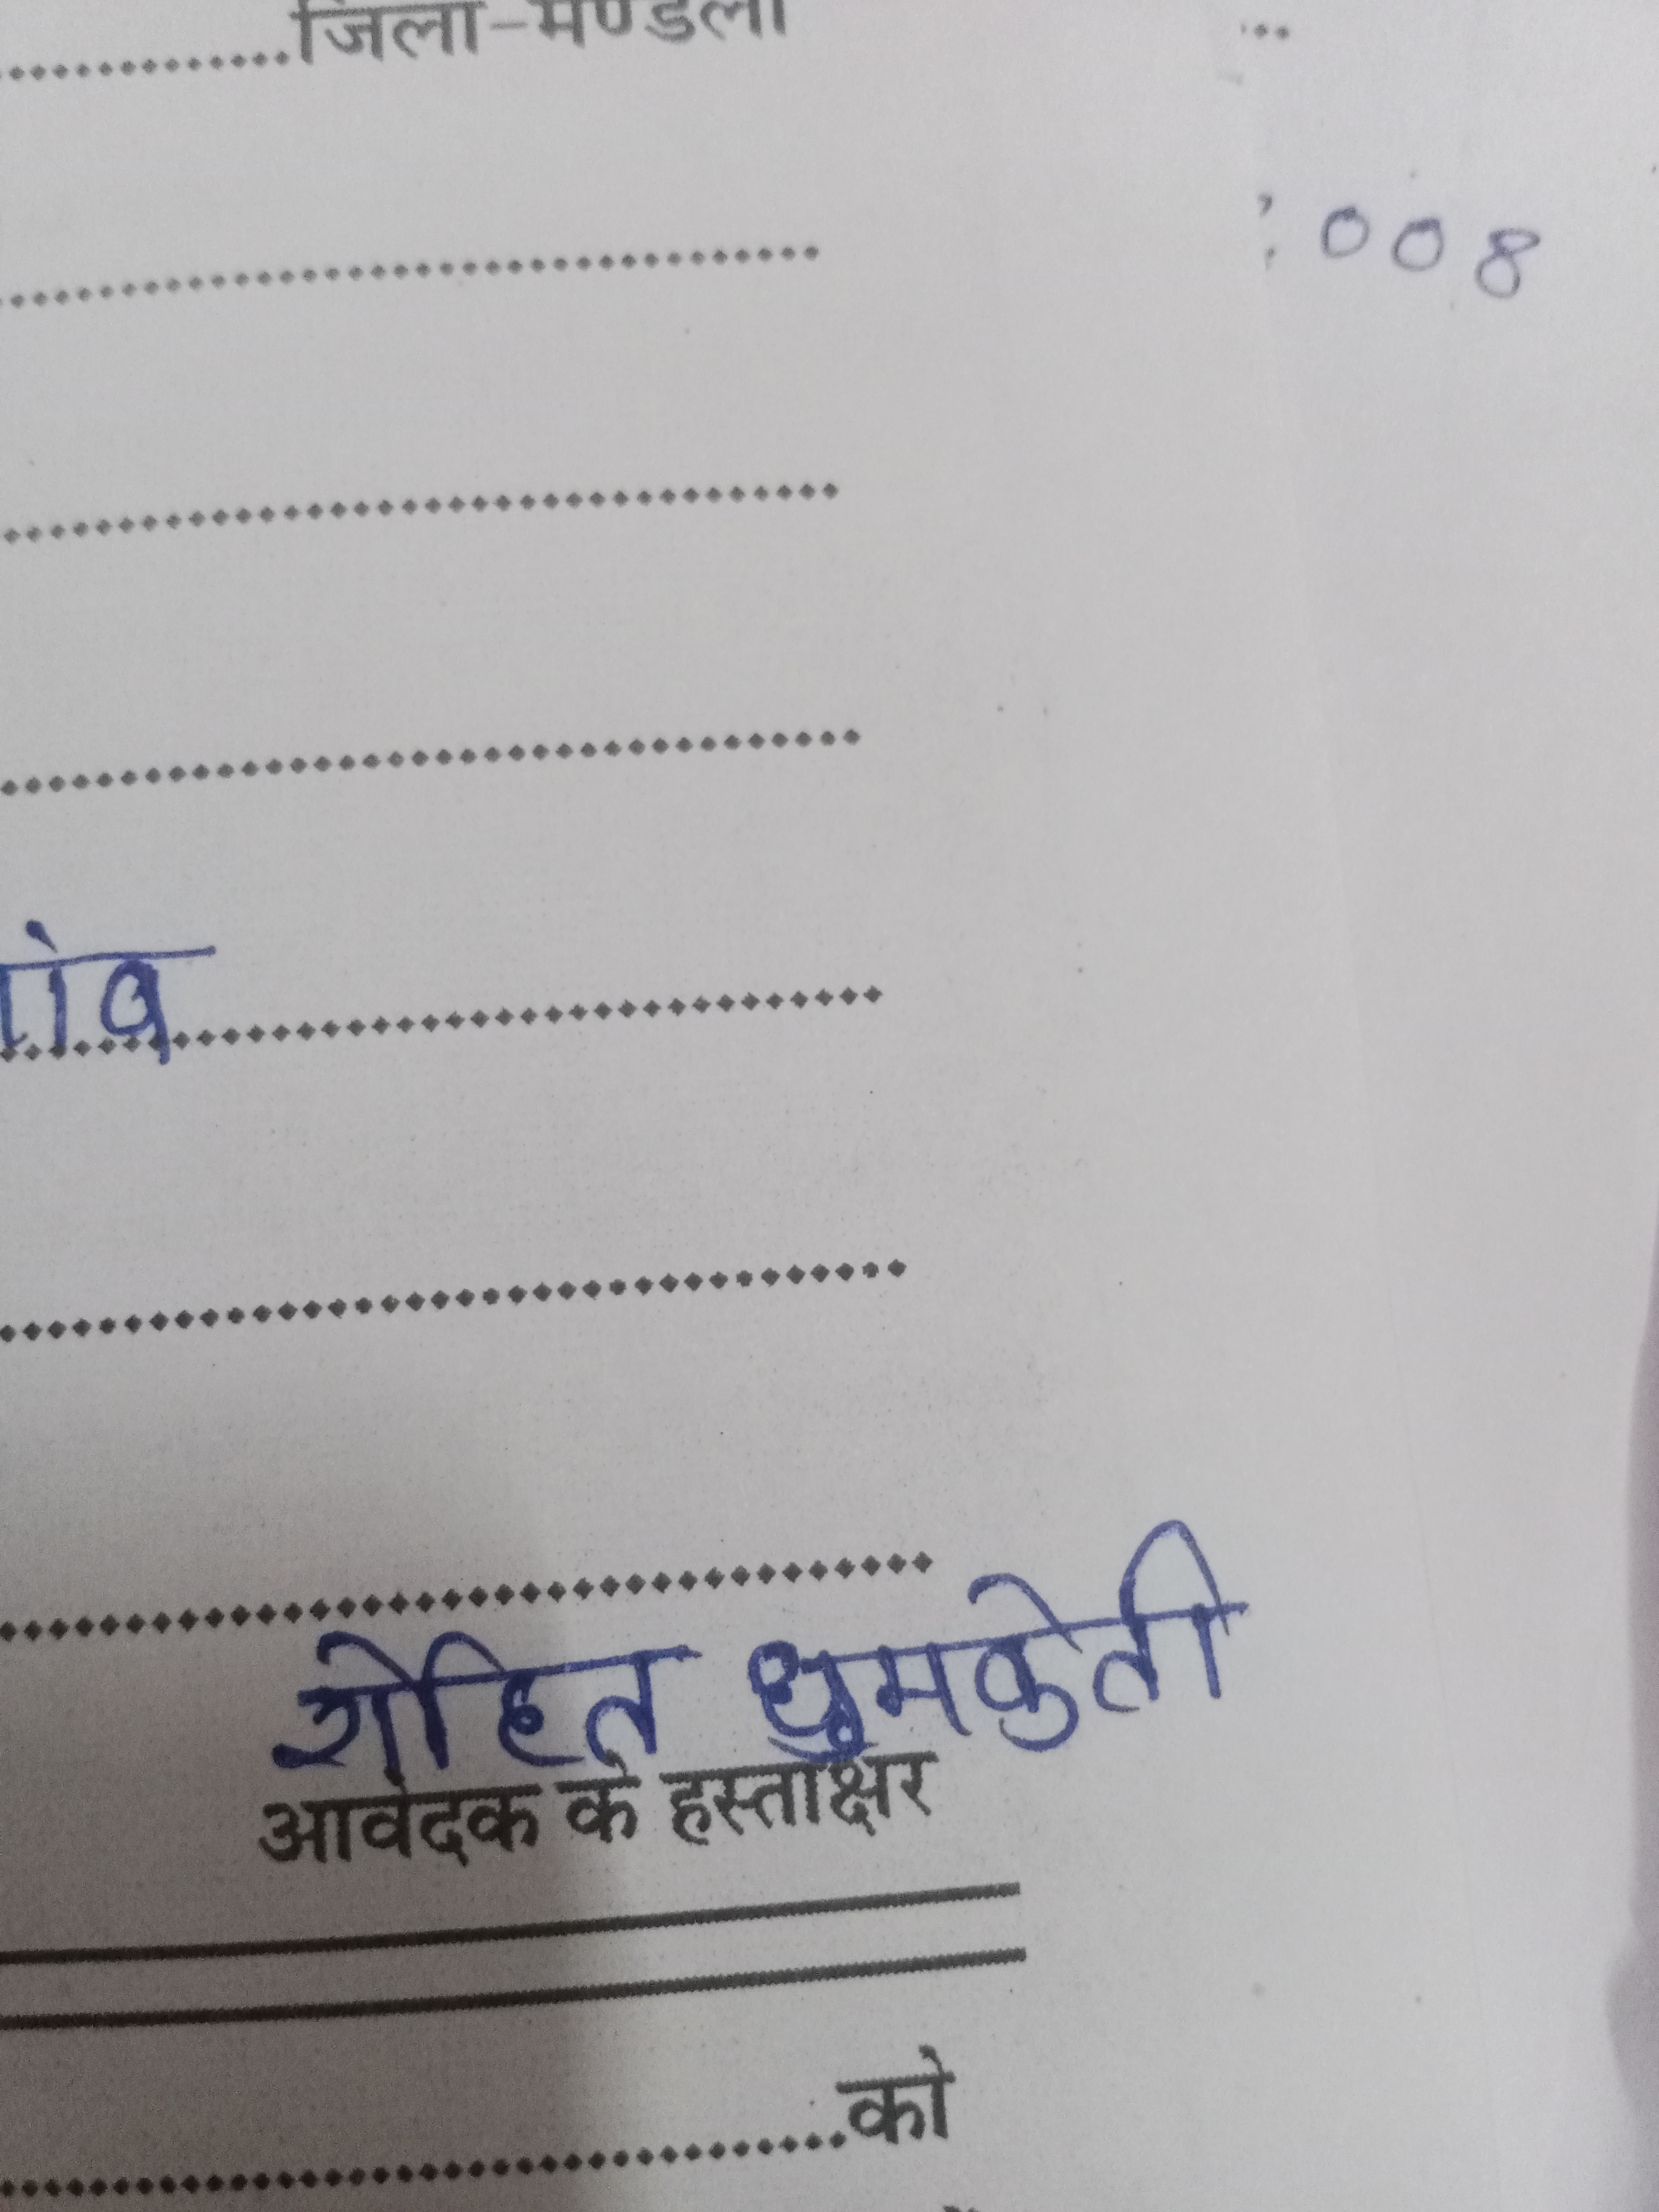 जिला-मण्डला
008
गांव
रोहित धुमकेती
आवेदक के हस्ताक्षर
को